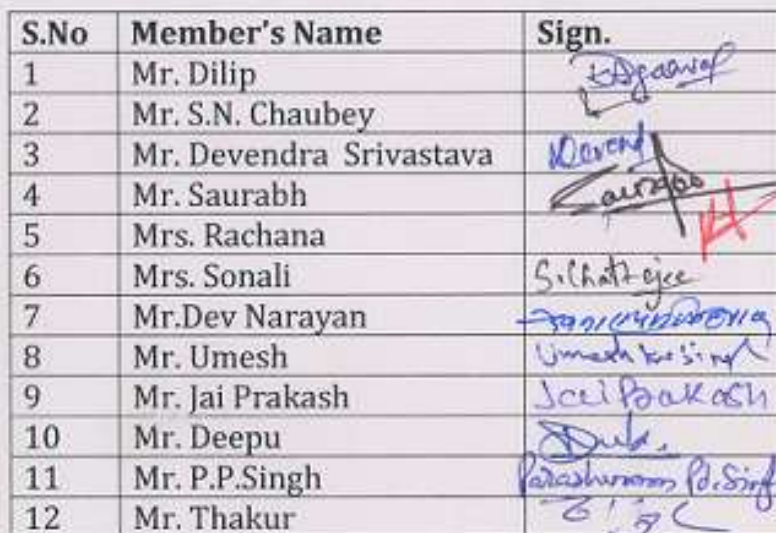 S.No Member's Name Sign.
1 Mr. Dilip DAgarwal
2 Mr. S.N. Chaubey
3 Mr. Devendra Srivastava Devend
4 Mr. Saurabh
5 Mrs. Rachana
6 Mrs. Sonali S. Chatterjee
7 Mr.Dev Narayan
8 Mr. Umesh Umesh Kr Singh
9 Mr. Jai Prakash Jai Prakash
10 Mr. Deepu
11 Mr. P.P.Singh Parashuram Pd. Singh
12 Mr. Thakur